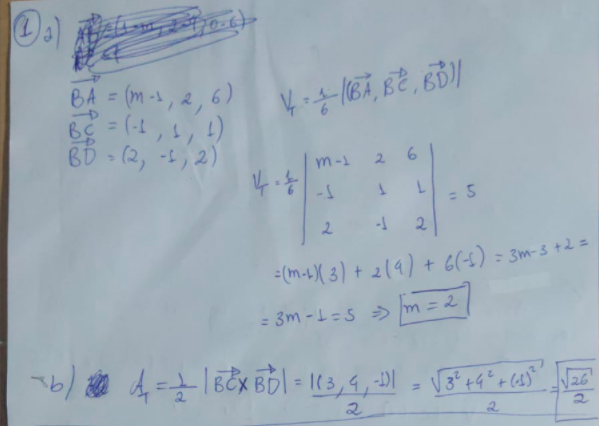 1 a)
BA = (m-1, 2, 6)
BC = (-1, 1, 1)
BD = (2, -1, 2)
V_T = 1/6 |(BA, BC, BD)|
V_T = 1/6 | m-1 2 6 |
| -1 1 1 | = 5
| 2 -1 2 |
= (m-1)(3) + 2(4) + 6(-1) = 3m-3+2 =
= 3m-1 = 5 ⇒ m = 2
b) A_T = 1/2 |BC × BD| = |(3, 4, -1)|/2 = √(3² + 4² + (-1)²)/2 = √26/2